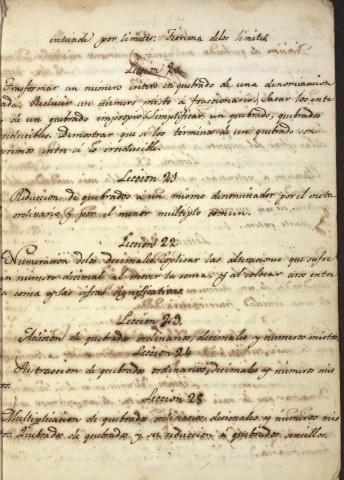 entiende por limites. Teorema de los limites
Leccion 20
Trasformar un número entero en quebrado de una denominacion
dada. Reducir un número misto á fraccionario. Sacar los ente
de un quebrado impropio. Simplificar un quebrado, quebrados
irreducibles. Demostrar que si los términos de un quebrado son
primos entre si es irreducible.
Leccion 21
Reduccion de quebrados á un mismo denominador por el metodo
ordinario y por el menor multiplo comun.
Leccion 22
Numeracion de los decimales. Esplicar las alteraciones que sufre
un número decimal al mover la coma, y al colocar ceros entre
la coma y las cifras significativas.
Leccion 23.
Adicion de quebrados ordinarios, decimales y numeros mistos
Leccion 24
Sustraccion de quebrados ordinarios, decimales y números mis
tos.
Leccion 25
Multiplicacion de quebrados ordinarios, decimales y números mis
tos. Quebrados de quebrados y su reduccion á quebrados sencillos.